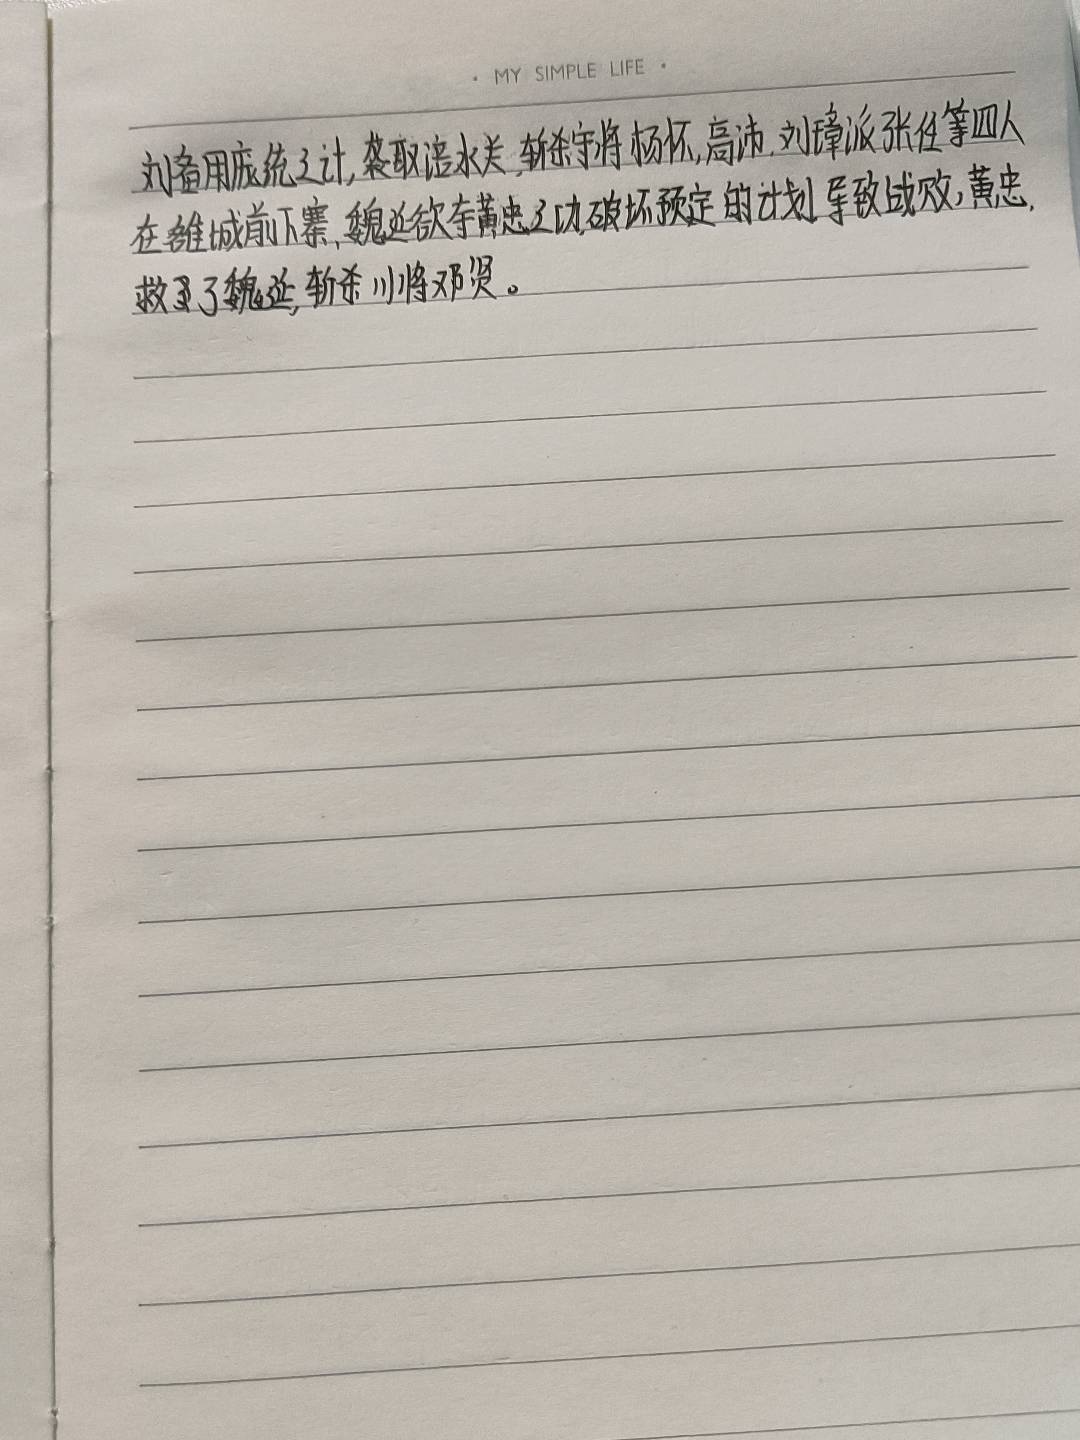 · MY SIMPLE LIFE ·
刘备用庞统之计,袭取涪水关,斩杀守将杨怀,高沛.刘璋派张任等四人
在雒城前下寨,魏延欲夺黄忠之功,破坏预定的计划导致战败,黄忠,
救了魏延,斩杀川将邓贤。